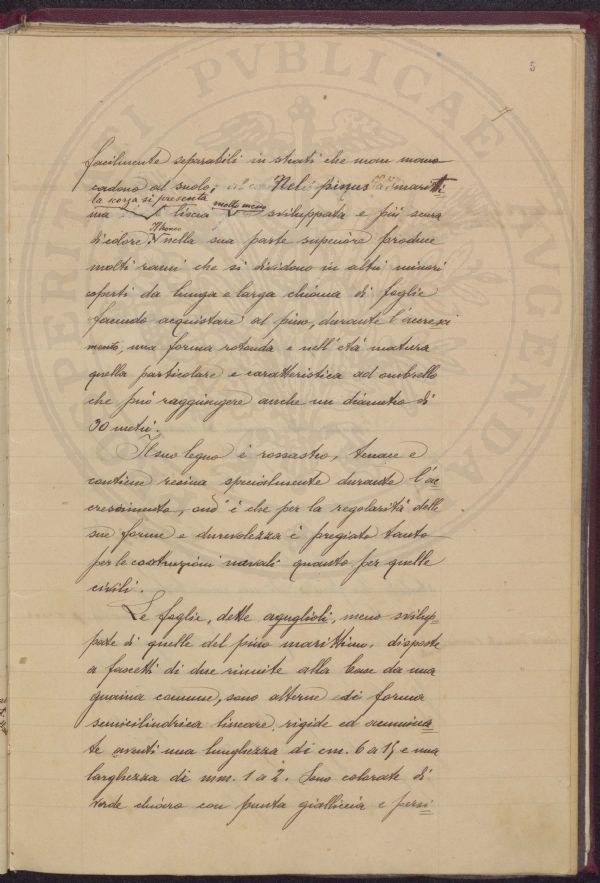 5
facilmente separabili in strati che man mano
cadono al suolo; Nel pinus maritti-
la scorza si presenta molto meno
ma liscia sviluppata e più scura
Il tronco
di colore nella sua parte superiore produce
molti rami che si dividono in altri minori
coperti da lunga e larga chioma di foglie
facendo acquistare al pino, durante l'accresci
mento, una forma rotonda e nell'età matura
quella particolare e caratteristica ad ombrello
che può raggiungere anche un diametro di
30 metri.
Il suo legno è rossastro, tenace e
contiene resina specialmente durante l'ac-
crescimento, ond'è che per la regolarità delle
sue forme e durevolezza è pregiato tanto
per le costruzioni navali quanto per quelle
civili.
Le foglie, dette aguglioli, meno svilup-
pate di quelle del pino marittimo, disposte
a fascetti di due riunite alla base da una
guaina comune, sono alterne di forma
semicilindrica lineare, rigide ed acumina-
te aventi una lunghezza di cm. 6 a 15 e una
larghezza di mm. 1 a 2. Sono colorate di
verde chiaro con punta gialliccia e persi-